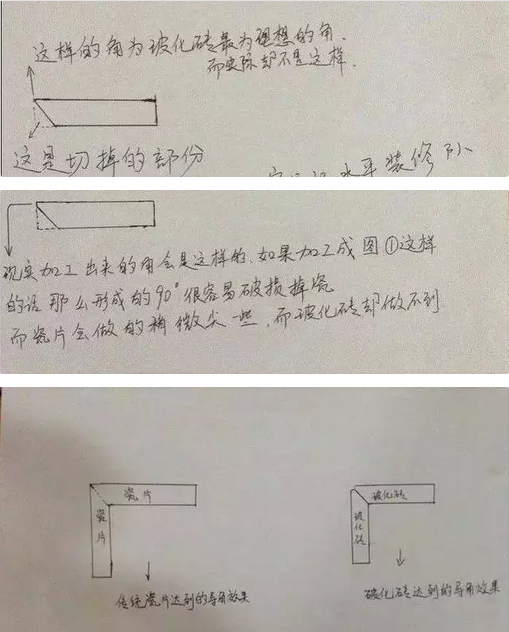 这样的角为玻化砖最为理想的角.
而实际却不是这样.
这是切掉的部份
水平装修队
现实加工出来的角会是这样的、如果加工成图①这样
的话那么形成的90°很容易破损掉瓷
而瓷片会做的稍微尖一些,而玻化砖却做不到
瓷片
瓷片
传统瓷片达到的导角效果
玻化砖
玻化砖
玻化砖达到的导角效果